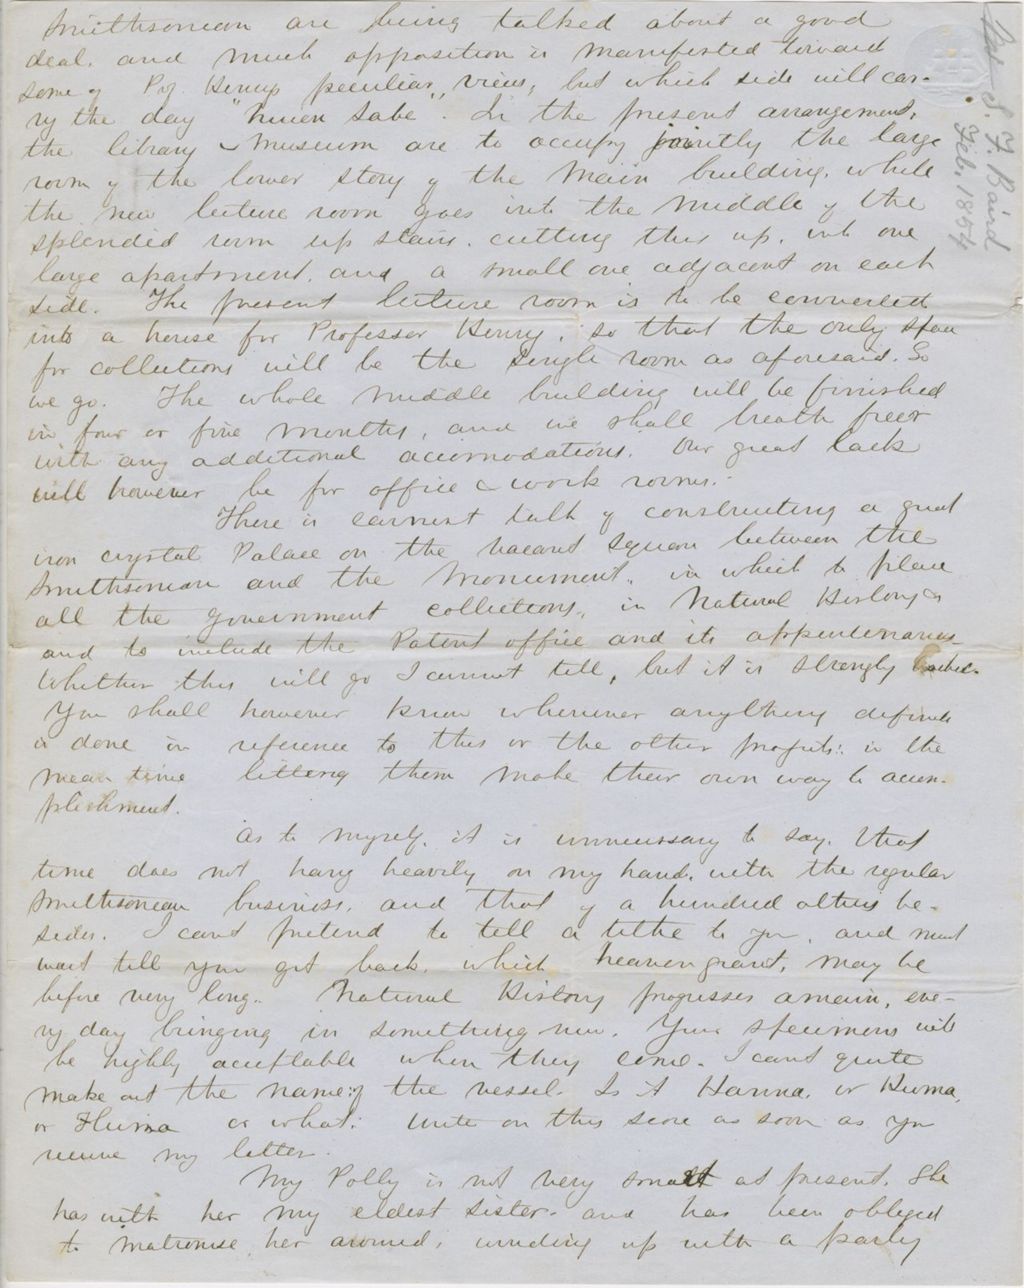 Smithsonian are being talked about a good
deal. and much opposition is manifested toward
some of Prof. Henrys peculiar views, but which side will car-
ry the day "Quien Sabe". In the present arrangement,
the library & Museum are to occupy jointly the large
room of the lower story of the main building. while
the new lecture room goes into the middle of the
splendid room up stairs. cutting this up. into one
large apartment. and a small one adjacent on each
side. The present lecture room is to be converted
into a house for Professor Henry, so that the only space
for collections will be the single room as aforesaid. So
we go. The whole middle building will be finished
in four or five months, and we shall breath freer
with any additional accomodations. Our great lack
will however be for office & work rooms.
There is earnest talk of constructing a great
iron crystal Palace on the vacant square between the
Smithsonian and the Monument. in which to place
all the government collections, in Natural History &
and to include the Patent office and its appurtenances
Whether this will go I cannot tell, but it is strongly backed.
You shall however know whenever anything definite
is done in reference to this or the other projects: in the
mean time letting them make their own way to accom-
plishment.
As to myself. it is unnecessary to say. that
time does not hang heavily on my hand. with the regular
Smithsonian business. and that of a hundred others be-
sides. I cant pretend to tell a tithe to you, and must
wait till you get back. which heaven grant, may be
before very long. Natural History progresses amain, eve-
ry day bringing in something new. Your specimens will
be highly acceptable when they come. I cant quite
make out the name of the vessel. Is it Hanna. or Huma,
or Fluima or what. Write on this score as soon as you
receive my letter.
My Polly is not very small at present. She
has with her my eldest sister. and has been obliged
to matronise her around, winding up with a party
Let S. F. Baird
Feb. 1854